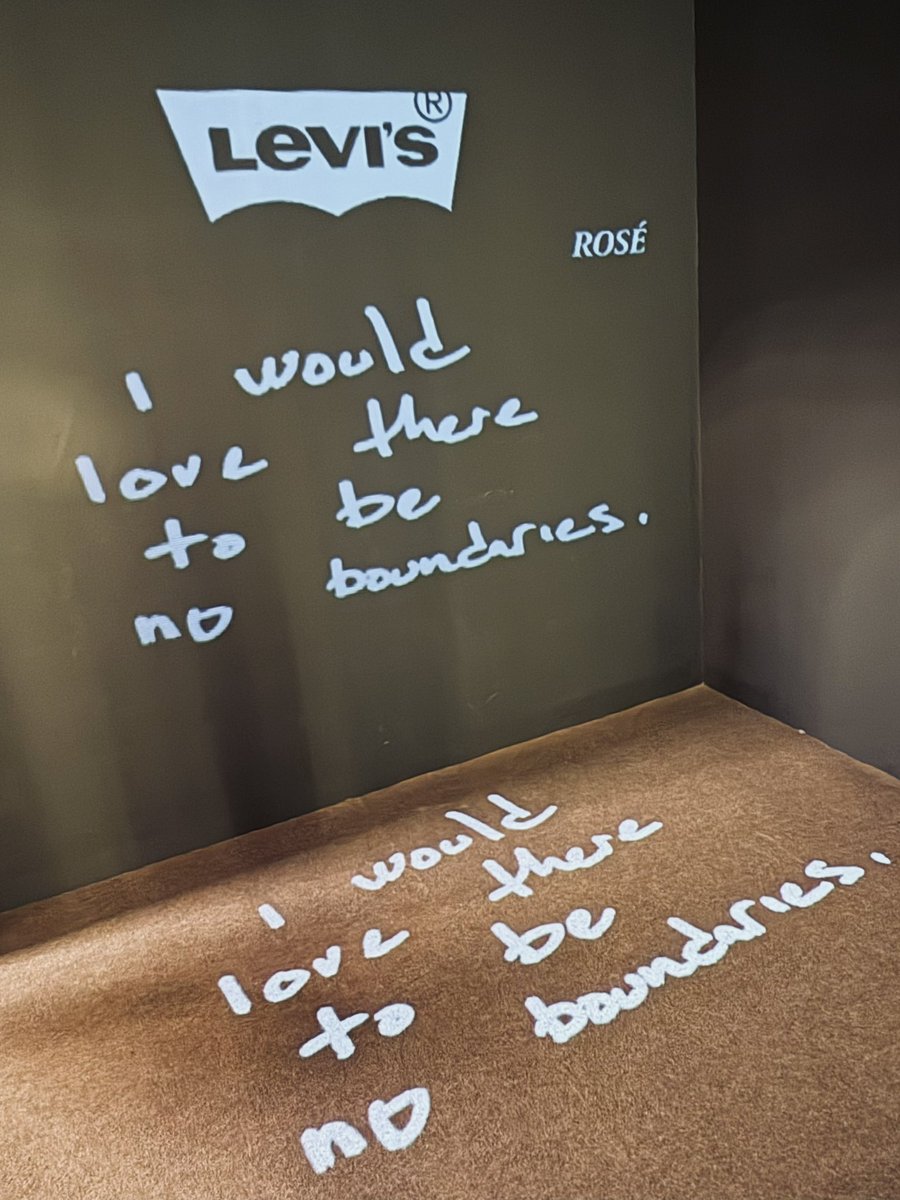 Levi's®
ROSÉ
I would
love there
to be
no boundaries.
I would
love there
to be
no boundaries.